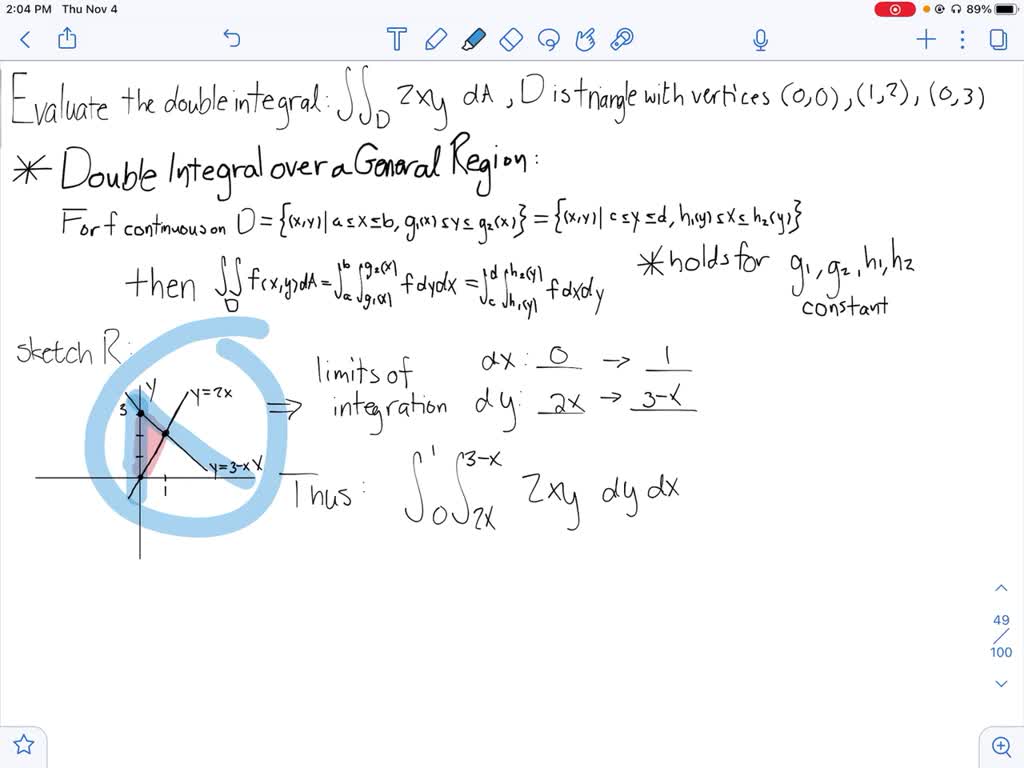 2:04 PM Thu Nov 4 89%
Evaluate the double integral: ∬_D 2xy dA, D is triangle with vertices (0,0), (1,2), (0,3)
* Double Integral over a General Region:
For f continuous on D = {(x,y) | a ≤ x ≤ b, g₁(x) ≤ y ≤ g₂(x)} = {(x,y) | c ≤ y ≤ d, h₁(y) ≤ x ≤ h₂(y)}
then ∬_D f(x,y) dA = ∫_a^b ∫_{g₁(x)}^{g₂(x)} f dy dx = ∫_c^d ∫_{h₁(y)}^{h₂(y)} f dx dy
* holds for g₁, g₂, h₁, h₂
constant
sketch R:
y
y=2x
3
y=3-x
x
1
⇒ limits of integration
dx: 0 → 1
dy: 2x → 3-x
Thus: ∫_0^1 ∫_{2x}^{3-x} 2xy dy dx
49
/
100